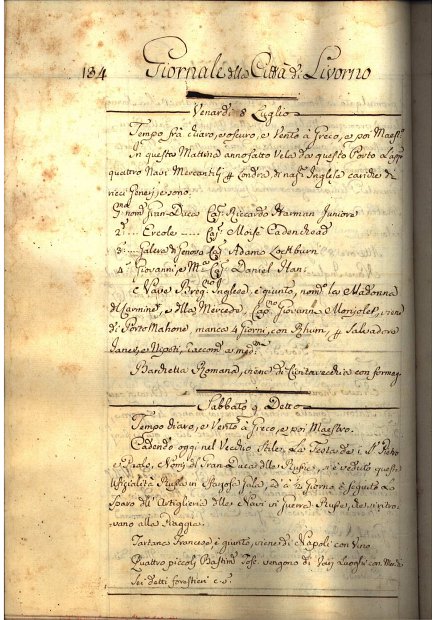 184 Giornale della Città di Livorno
Venardì 8 Luglio
Tempo frà chiaro, e oscuro, e Vento à Greco, e poi Maest.o
In questa Mattina anno fatto Vela da questo Porto
quattro Navi Mercantili Londra, di naz.e Inglese cariche di
ricci Generi, e sono
P.ma nom.ta Gran Duca Cap. Riccardo Harman Juniore
2.... Ercole .... Cap. Moisè Cadenhead
3.... Galera di Genova Cap. Adamo Lockburn
4.. Giovanni, e M.a Cap. Daniel
e Nave Inglese, è giunta, nom.ta la Madonna
del Carmine, e della Mercede, Cap.no Giovanni viene
di Porto Mahone, manca 4 Giorni, con Rhum, Salvadore
e Nipoti,
Barchetta Romana, viene di Civitavecchia con
Sabbato 9 Detto
Tempo chiaro, e Vento à Greco, e poi Maestro.
Cadendo oggi nel Vecchio Stile, La Festa de i S.ti Pietro
e Paolo, Nome di Gran Duca delle Russie, si è veduto questa
Ufizialità Russa in Sfarzosa Gala, ed à ½ Giorno è seguito Lo
Sparo dell'Artiglieria delle Navi di Guerra Russe, che si ritro-
vano alla Raggia.
Tartana Francese è giunta, viene di Napoli con Vino
Quattro piccoli Bastim.ti Tos. vengono di Varj Luoghi con
Sei detti forestieri c.s.